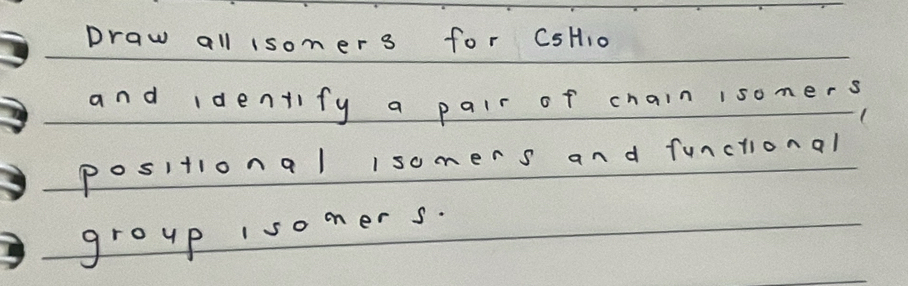 Draw all isomers for C5H10
and identify a pair of chain isomers,
positional isomers and functional
group isomers.